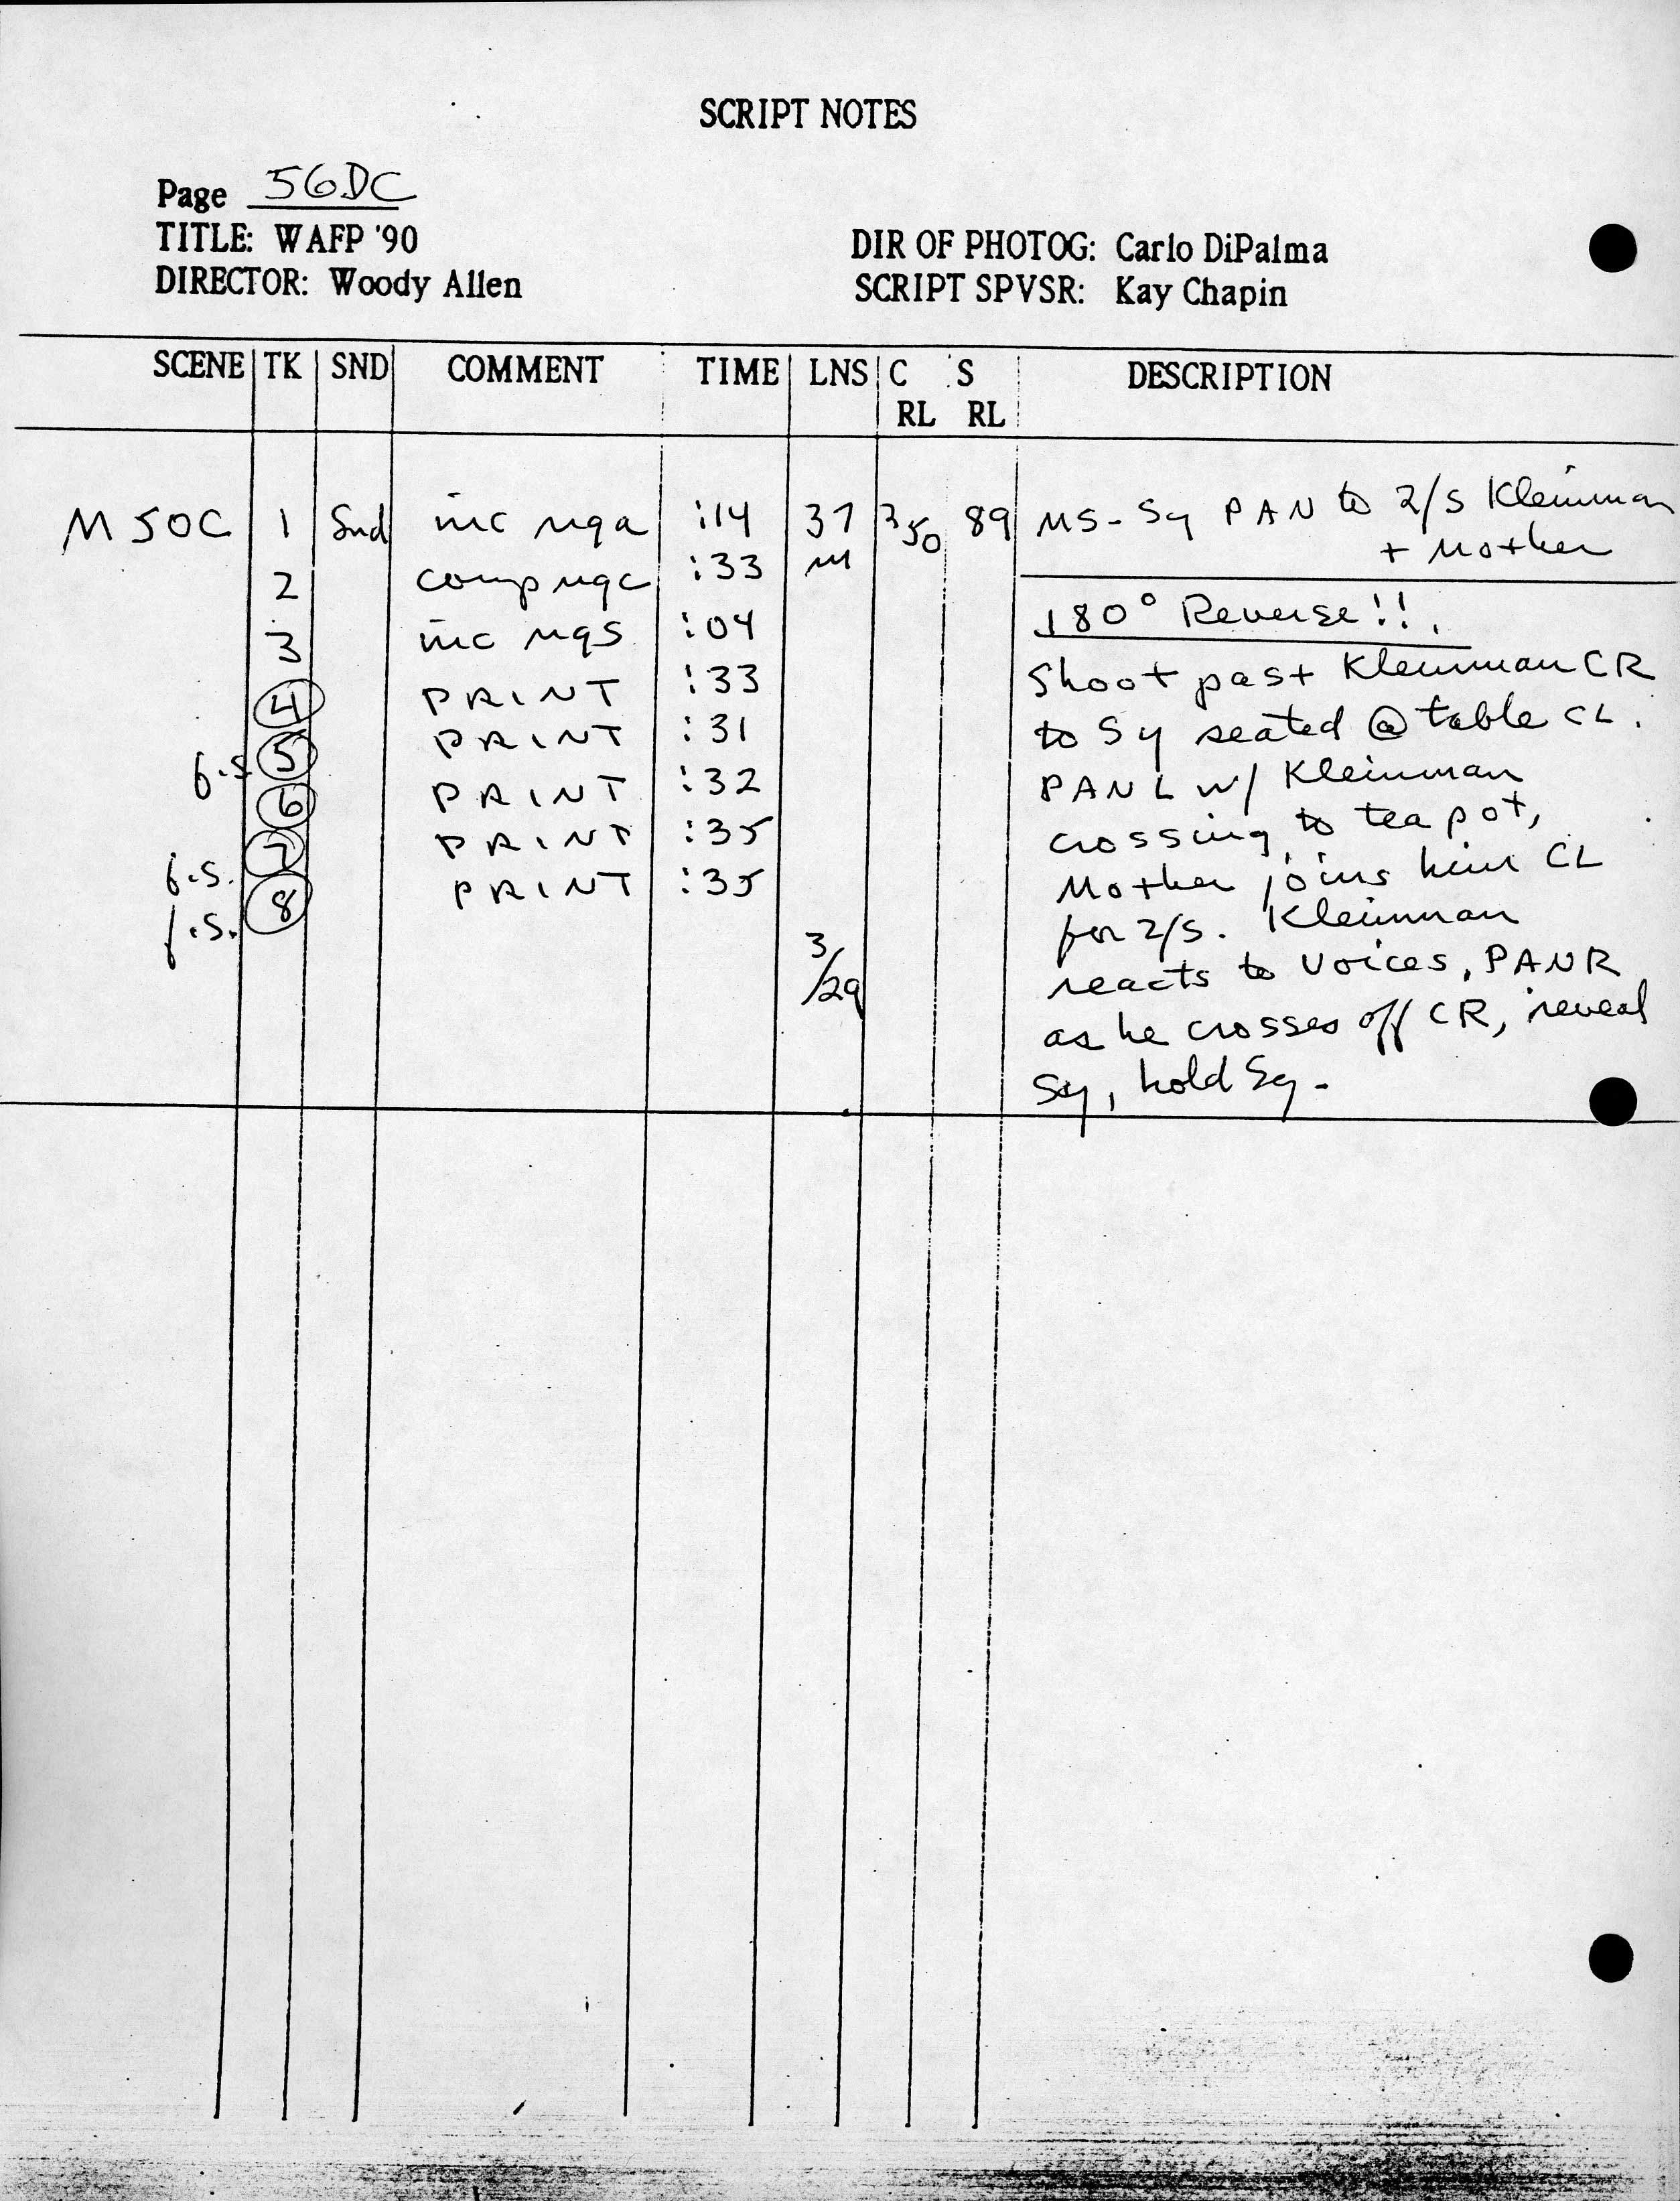 SCRIPT NOTES
Page 56DC
TITLE: WAFP '90
DIRECTOR: Woody Allen
DIR OF PHOTOG: Carlo DiPalma
SCRIPT SPVSR: Kay Chapin
SCENE TK SND COMMENT TIME LNS C RL S RL DESCRIPTION
M50C 1 Snd inc nga :14 37 350 89 MS - Sy PAN to 2/S Kleinman
m + Mother
2 comp ngc :33
180° Reverse!!
3 inc ngs :04
4 PRINT :33 Shoot past Kleinman CR
f.s. 5 PRINT :31 to Sy seated @ table CL.
6 PRINT :32 PAN L w/ Kleinman
f.s. 7 PRINT :35 crossing to tea pot,
f.s. 8 PRINT :35 Mother joins him CL
for 2/S. Kleinman
3/29 reacts to voices, PAN R
as he crosses off CR, reveal
Sy, hold Sy.